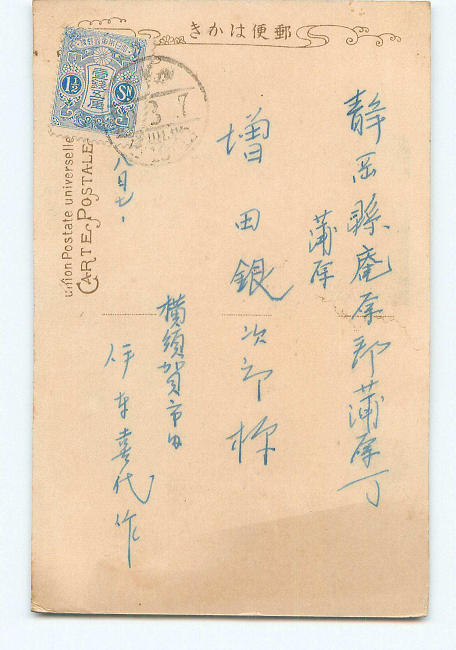 きかは便郵
静岡縣庵原郡蒲原町
蒲原
増田銀次郎様
横須賀市内
伊東喜代作
八月七、
1½ Sn
壹錢五厘
3 7
Union Postale universelle
CARTE POSTALE